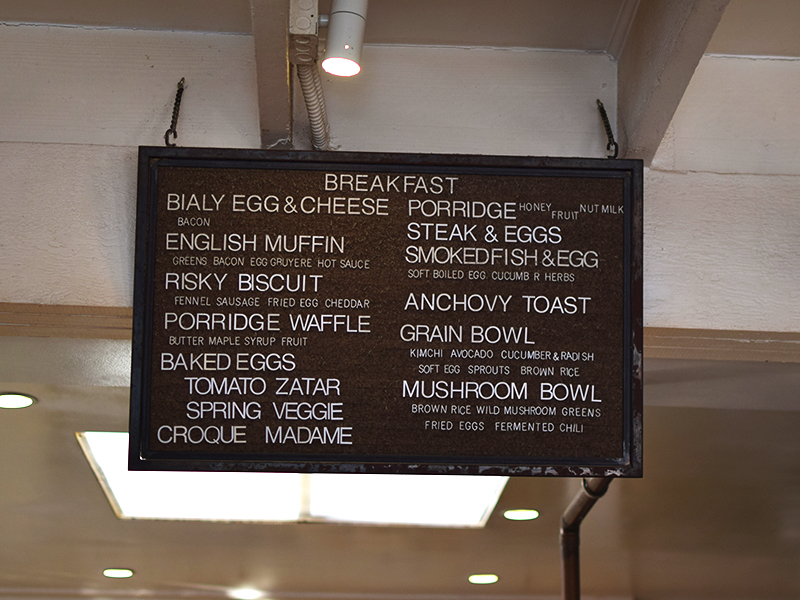 BREAKFAST
BIALY EGG & CHEESE
BACON
ENGLISH MUFFIN
GREENS BACON EGG GRUYERE HOT SAUCE
RISKY BISCUIT
FENNEL SAUSAGE FRIED EGG CHEDDAR
PORRIDGE WAFFLE
BUTTER MAPLE SYRUP FRUIT
BAKED EGGS
TOMATO ZATAR
SPRING VEGGIE
CROQUE MADAME
PORRIDGE HONEY FRUIT NUT MILK
STEAK & EGGS
SMOKED FISH & EGG
SOFT BOILED EGG CUCUMB R HERBS
ANCHOVY TOAST
GRAIN BOWL
KIMCHI AVOCADO CUCUMBER & RADISH
SOFT EGG SPROUTS BROWN RICE
MUSHROOM BOWL
BROWN RICE WILD MUSHROOM GREENS
FRIED EGGS FERMENTED CHILI